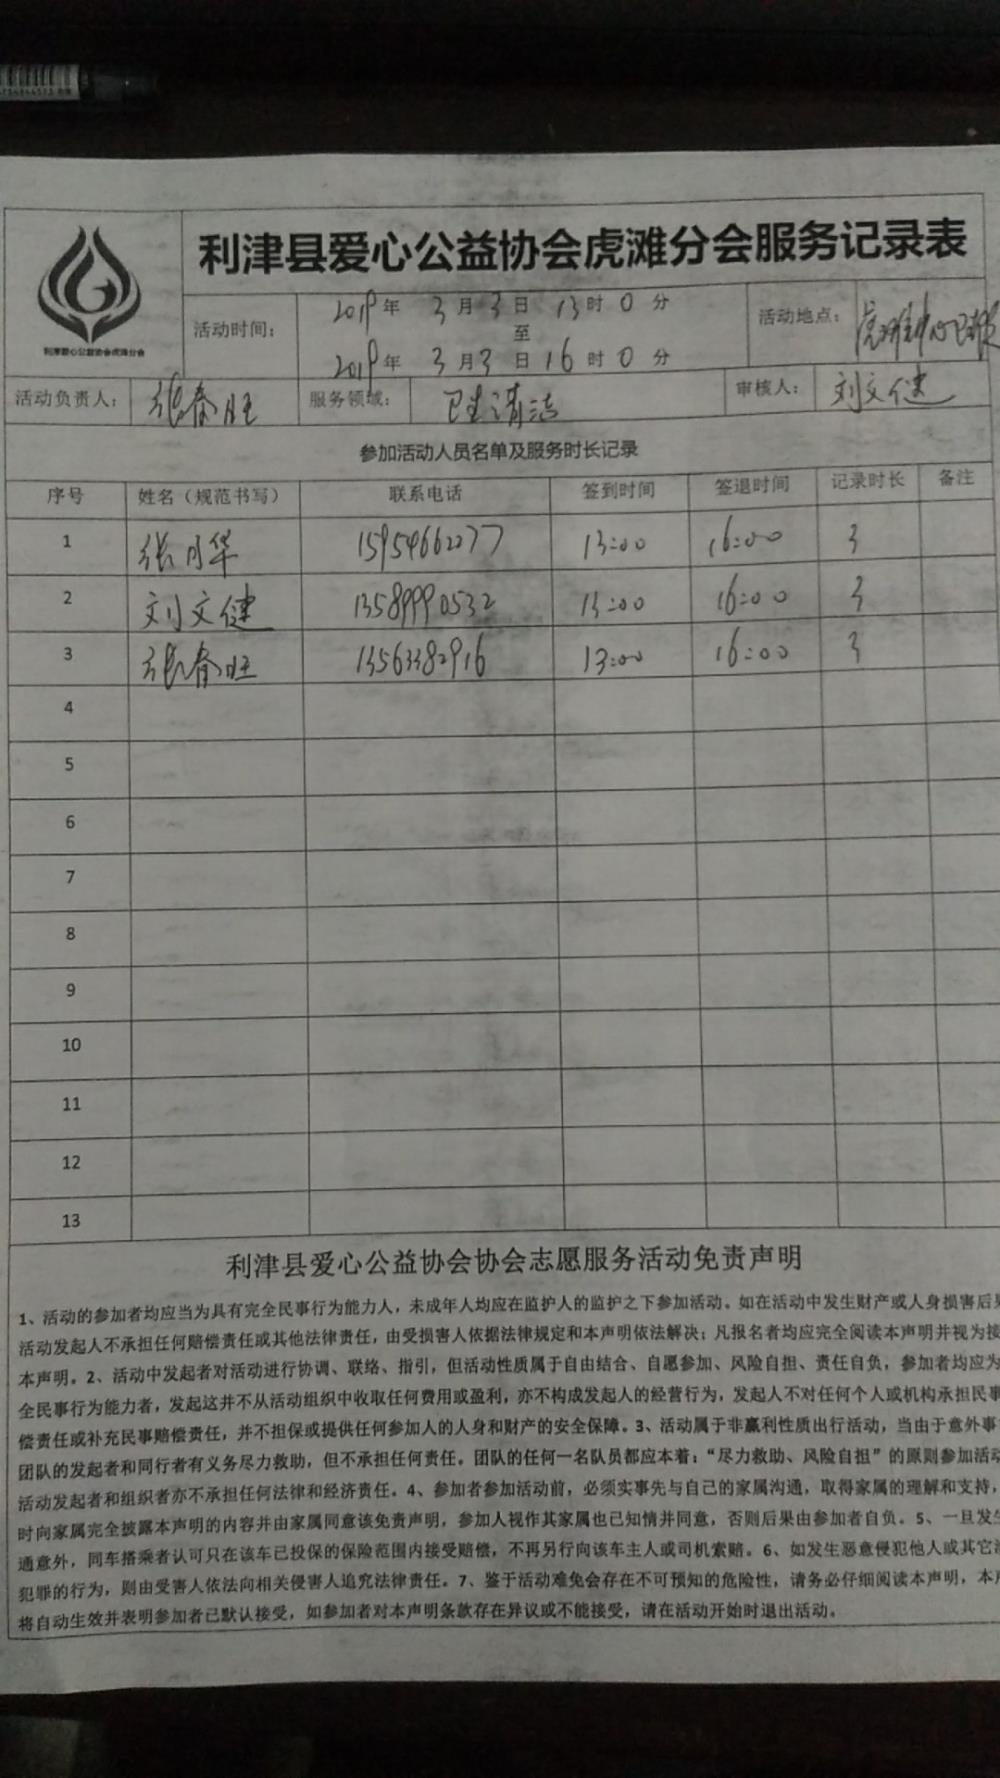 利津县爱心公益协会虎滩分会服务记录表
利津爱心公益协会虎滩分会
活动时间：
2019年 3月3日 13时0分
至
2019年 3月3日16时0分
活动地点：
活动负责人： 张春旺 服务领域： 卫生清洁 审核人： 刘文健
参加活动人员名单及服务时长记录
序号 姓名（规范书写） 联系电话 签到时间 签退时间 记录时长 备注
1 张月华 15954662077 13:00 16:00 3
2 刘文健 13589990532 13:00 16:00 3
3 张春旺 13563382916 13:00 16:00 3
4
5
6
7
8
9
10
11
12
13
利津县爱心公益协会协会志愿服务活动免责声明
1、活动的参加者均应当为具有完全民事行为能力人，未成年人均应在监护人的监护之下参加活动。如在活动中发生财产或人身损害后果
活动发起人不承担任何赔偿责任或其他法律责任，由受损害人依据法律规定和本声明依法解决；凡报名者均应完全阅读本声明并视为接
本声明。2、活动中发起者对活动进行协调、联络、指引，但活动性质属于自由结合、自愿参加、风险自担、责任自负，参加者均应为
全民事行为能力者，发起这并不从活动组织中收取任何费用或盈利，亦不构成发起人的经营行为，发起人不对任何个人或机构承担民事
偿责任或补充民事赔偿责任，并不担保或提供任何参加人的人身和财产的安全保障。3、活动属于非赢利性质出行活动，当由于意外事
团队的发起者和同行者有义务尽力救助，但不承担任何责任。团队的任何一名队员都应本着：“尽力救助、风险自担”的原则参加活动
活动发起者和组织者亦不承担任何法律和经济责任。4、参加者参加活动前，必须实事先与自己的家属沟通，取得家属的理解和支持，
时向家属完全披露本声明的内容并由家属同意该免责声明，参加人视作其家属也已知情并同意，否则后果由参加者自负。5、一旦发生
通意外，同车搭乘者认可只在该车已投保的保险范围内接受赔偿，不再另行向该车主人或司机索赔。6、如发生恶意侵犯他人或其它
犯罪的行为，则由受害人依法向相关侵害人追究法律责任。7、鉴于活动难免会存在不可预知的危险性，请务必仔细阅读本声明，本声
将自动生效并表明参加者已默认接受，如参加者对本声明条款存在异议或不能接受，请在活动开始时退出活动。